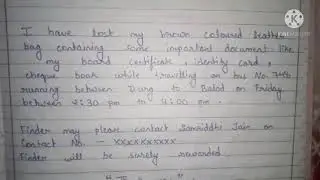 I have lost my brown coloured leather
bag containing some important document like
my board certificate, identity card,
cheque book while travelling on bus No. 7446
running between Durg to Balod on Friday
between 2:30 pm to 4:00 pm.
Finder may please contact Samriddhi Jain on
Contact No. - XXXXXXXXXX
Finder will be surely rewarded